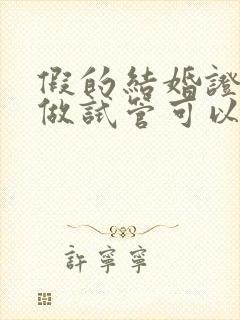 假的結婚證
做試管可以
許寧寧